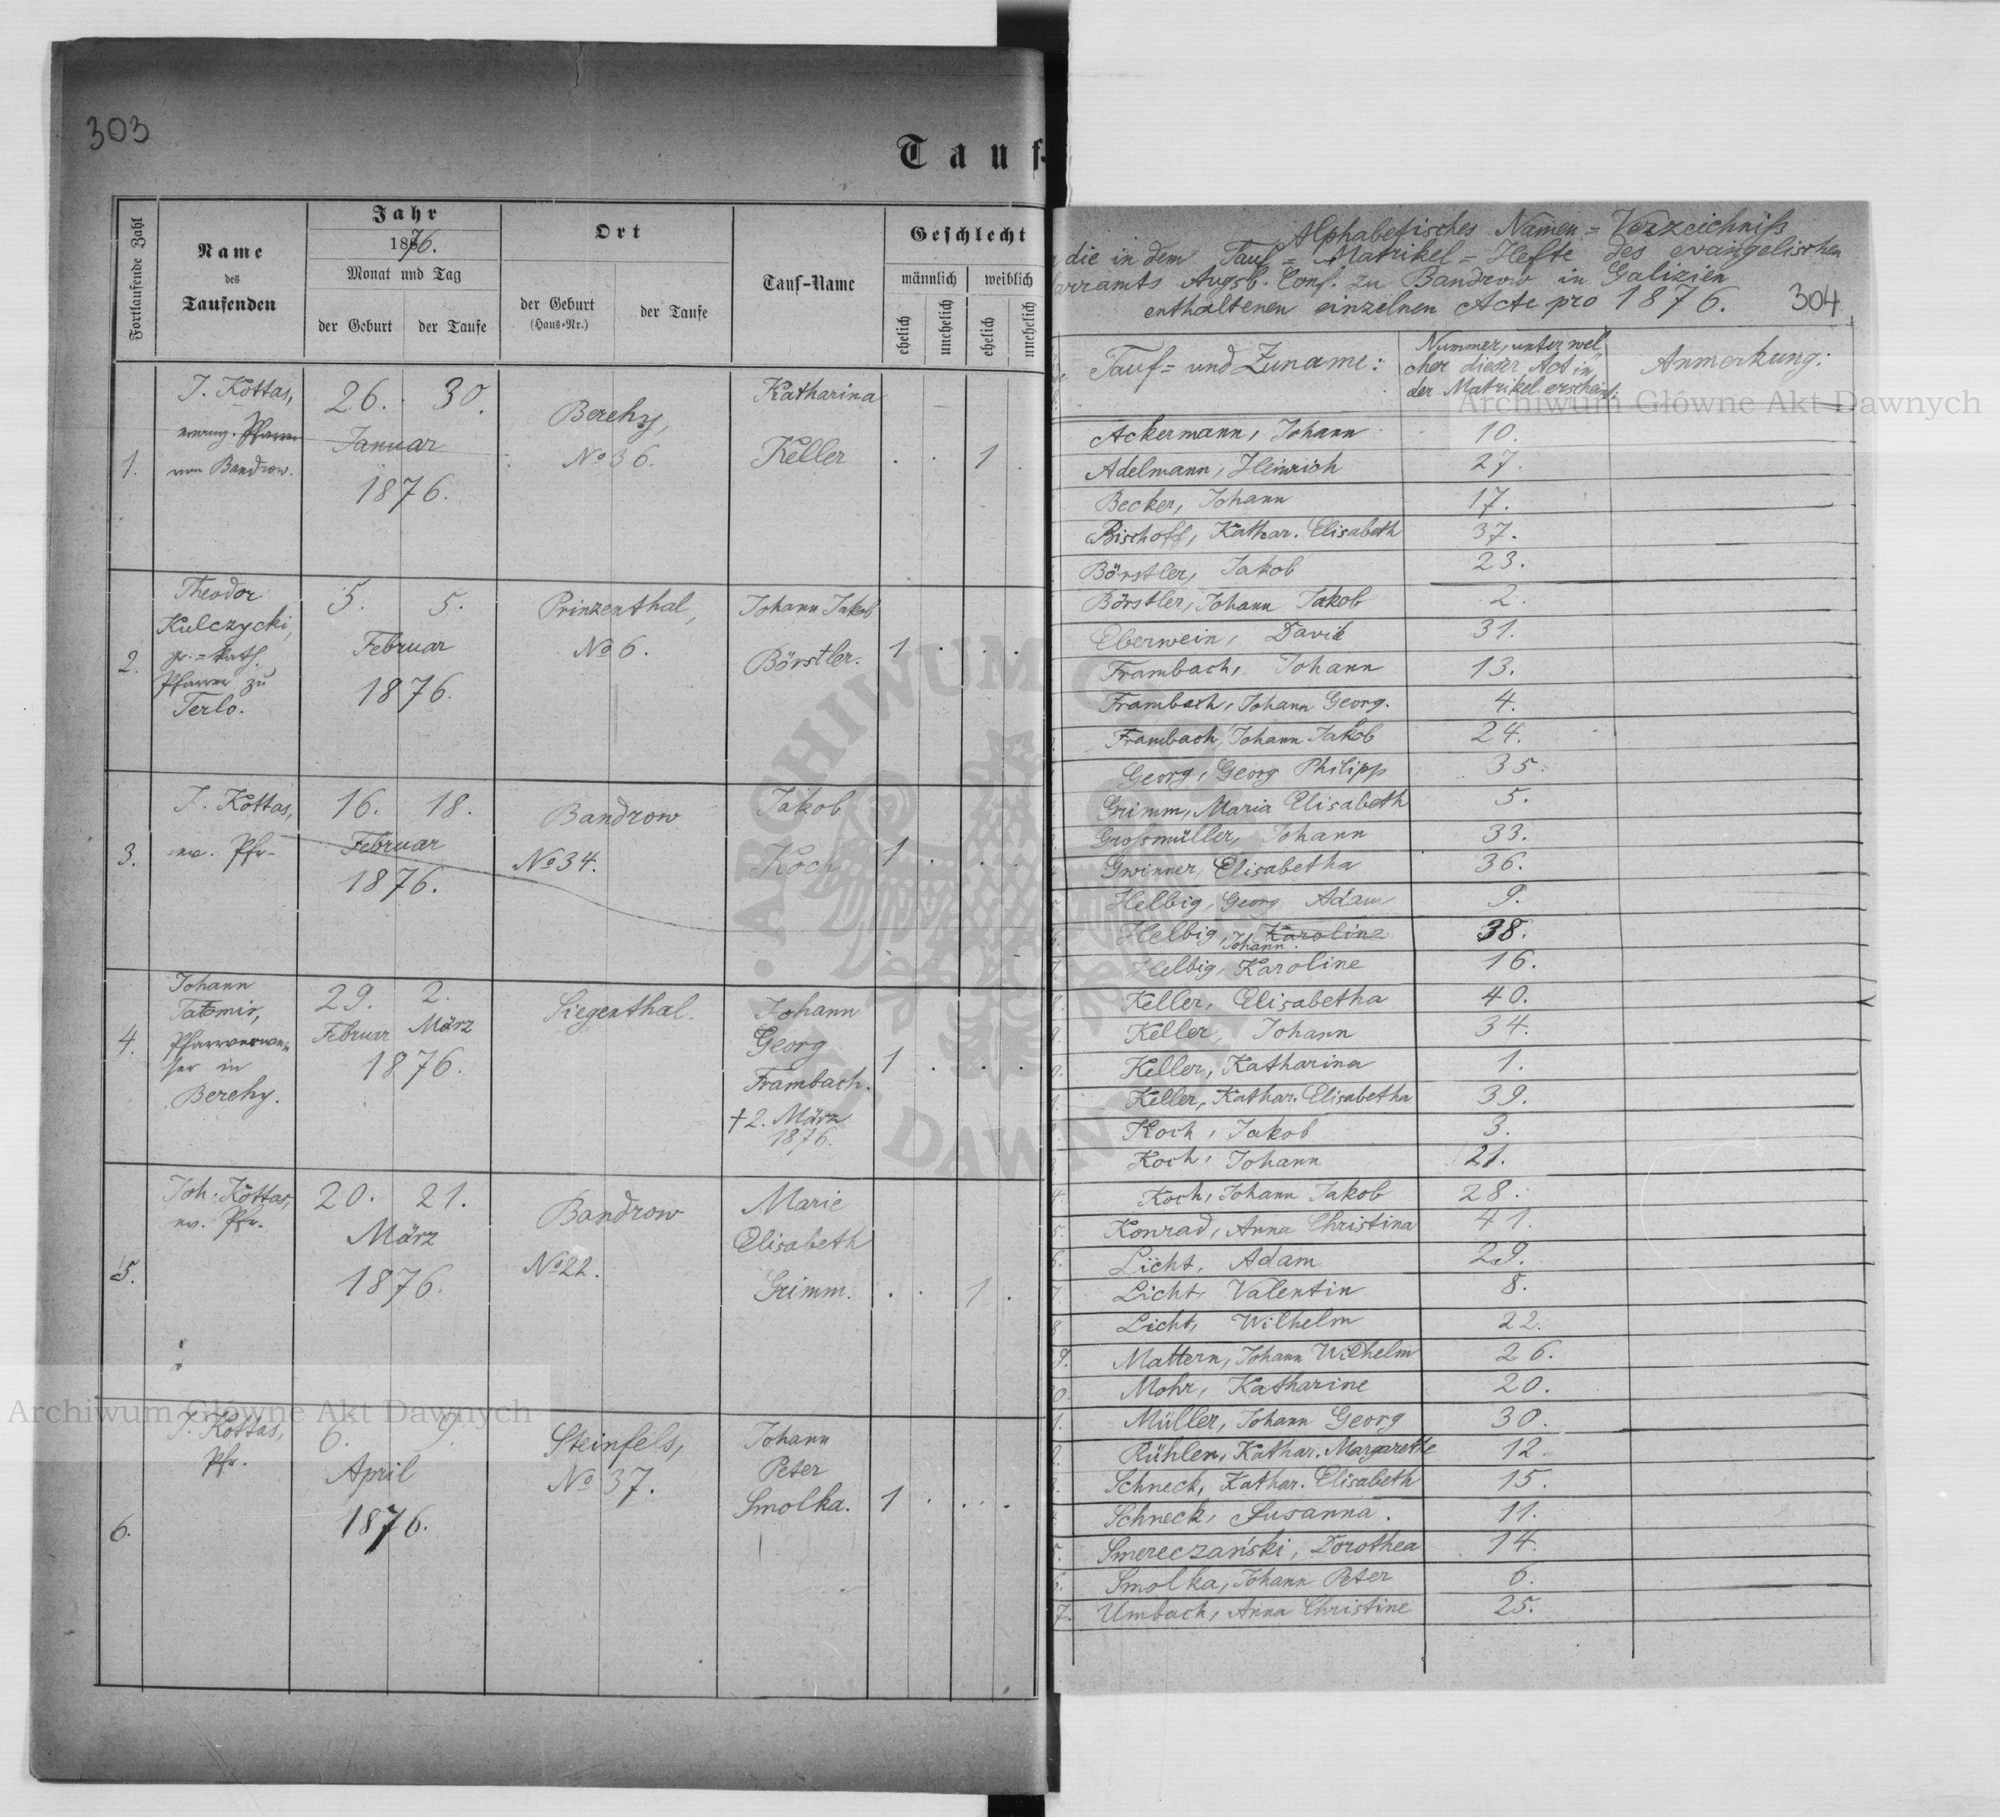 303
Tauf-
Fortlaufende Zahl
Name
des
Taufenden
Jahr
1876.
Monat und Tag
der Geburt
der Taufe
Ort
der Geburt
(Haus-Nr.)
der Taufe
Tauf-Name
Geschlecht
männlich
weiblich
ehelich
unehelich
ehelich
unehelich
1.
J. Kottas,
evang. Pfarrer
von Bandrow.
26. 30.
Januar
1876.
Berehy,
No 36.
Katharina
Keller
1
2.
Theodor
Kulczycki,
gr.=kath.
Pfarrer zu
Terlo.
5. 5.
Februar
1876.
Prinzenthal,
No 6.
Johann Jakob
Börstler.
1
3.
J. Kottas,
ev. Pfr.
16. 18.
Februar
1876.
Bandrow
No 34.
Jakob
Koch
1
4.
Johann
Tatomir,
Pfarrverwe-
ser in
Berehy.
29. 2.
Februar März
1876.
Siegenthal.
Johann
Georg
Frambach.
† 2. März
1876.
1
5.
Joh. Kottas,
ev. Pfr.
20. 21.
März
1876.
Bandrow
No 22.
Marie
Elisabeth
Grimm.
1
6.
J. Kottas,
Pfr.
6. 9.
April
1876.
Steinfels,
No 37.
Johann
Peter
Smolka.
1
Alphabetisches Namen=Verzeichniß
die in dem Tauf=Matrikel=Hefte des evangelischen
arramts Augsb. Conf. zu Bandrow in Galizien
enthaltenen einzelnen Acte pro 1876.
304
Tauf= und Zuname:
Nummer, unter wel
cher dieser Act in
der Matrikel erscheint:
Anmerkung:
Ackermann, Johann 10.
Adelmann, Heinrich 27.
Becker, Johann 17.
Bischoff, Kathar. Elisabeth 37.
Börstler, Jakob 23.
Börstler, Johann Jakob 2.
Eberwein, David 31.
Frambach, Johann 13.
Frambach, Johann Georg. 4.
Frambach, Johann Jakob 24.
Georg, Georg Philipp 35.
Grimm, Maria Elisabeth 5.
Großmüller, Johann 33.
Gwinner, Elisabetha 36.
Helbig, Georg Adam 9.
Helbig, Karoline 38.
Johann.
Helbig, Karoline 16.
Keller, Elisabetha 40.
Keller, Johann 34.
Keller, Katharina 1.
Keller, Kathar. Elisabetha 39.
Koch, Jakob 3.
Koch, Johann 21.
Koch, Johann Jakob 28.
Konrad, Anna Christina 41.
Licht, Adam 29.
Licht, Valentin 8.
Licht, Wilhelm 22.
Mattern, Johann Wilhelm 26.
Mohr, Katharine 20.
Müller, Johann Georg 30.
Rühlen, Kathar. Margarethe 12.
Schneck, Kathar. Elisabeth 15.
Schneck, Susanna. 11.
Smereczański, Dorothea 14.
Smolka, Johann Peter 6.
Umbach, Anna Christine 25.
Archiwum Główne Akt Dawnych
Archiwum Główne Akt Dawnych